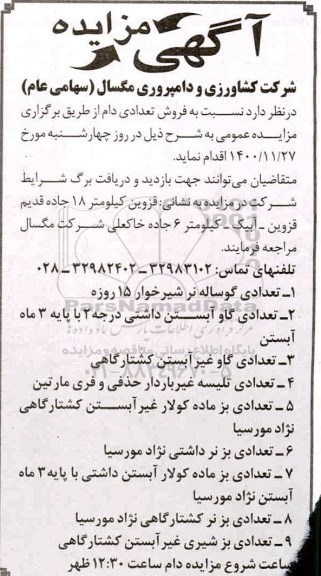 آگهی مزایده
شرکت کشاورزی و دامپروری مگسال (سهامی عام)
در نظر دارد نسبت به فروش تعدادی دام از طریق برگزاری
مزایده عمومی به شرح ذیل در روز چهارشنبه مورخ
۱۴۰۰/۱۱/۲۷ اقدام نماید.
متقاضیان می‌توانند جهت بازدید و دریافت برگ شرایط
شرکت در مزایده به نشانی: قزوین کیلومتر ۱۸ جاده قدیم
قزوین ـ آبیک ـ کیلومتر ۶ جاده خاکعلی شرکت مگسال
مراجعه فرمایند.
تلفنهای تماس: ۳۲۹۸۳۱۰۲ ـ ۳۲۹۸۲۴۰۲ ـ ۰۲۸
۱ـ تعدادی گوساله نر شیرخوار ۱۵ روزه
۲ـ تعدادی گاو آبستن داشتی درجه ۲ با پایه ۳ ماه
آبستن
۳ـ تعدادی گاو غیرآبستن کشتارگاهی
۴ ـ تعدادی تلیسه غیرباردار حذفی و فری مارتین
۵ ـ تعدادی بز ماده کولار غیرآبستن کشتارگاهی
نژاد مورسیا
۶ ـ تعدادی بز نر داشتی نژاد مورسیا
۷ ـ تعدادی بز ماده کولار آبستن داشتی با پایه ۳ ماه
آبستن نژاد مورسیا
۸ ـ تعدادی بز نر کشتارگاهی نژاد مورسیا
۹ ـ تعدادی بز شیری غیرآبستن کشتارگاهی
ساعت شروع مزایده دام ساعت ۱۲:۳۰ ظهر